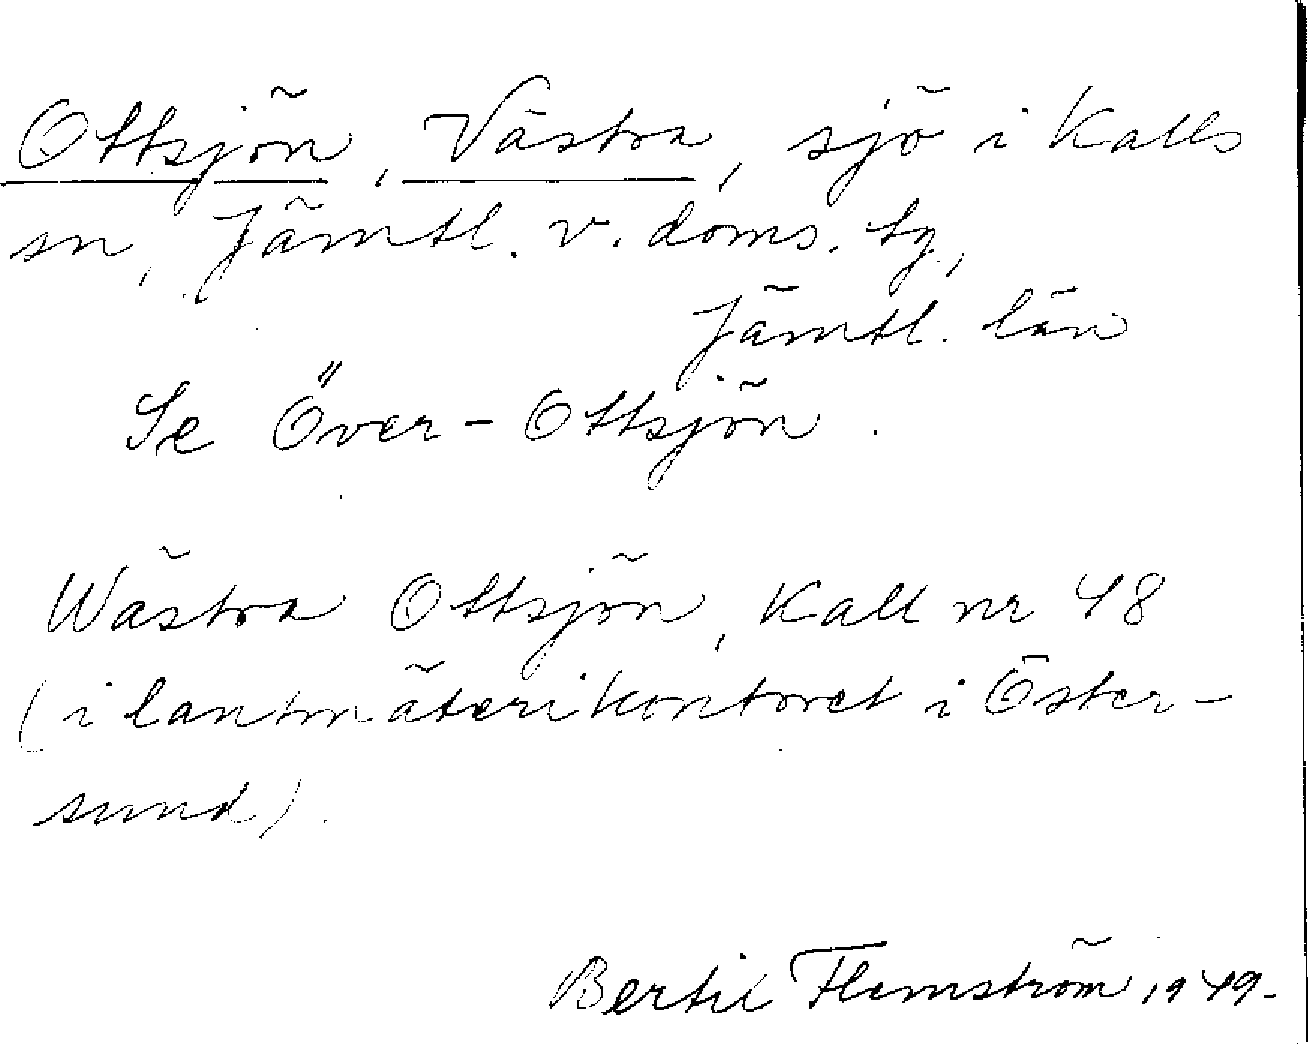 Ottsjön, Västra, sjö i Kalls
sn, Jämtl. v. doms. tg,
Jämtl. län
Se Över-Ottsjön.
Wästra Ottsjön, Kall nr 48
(i lantmäterikontoret i Öster-
sund).
Bertil Flemström 1949-